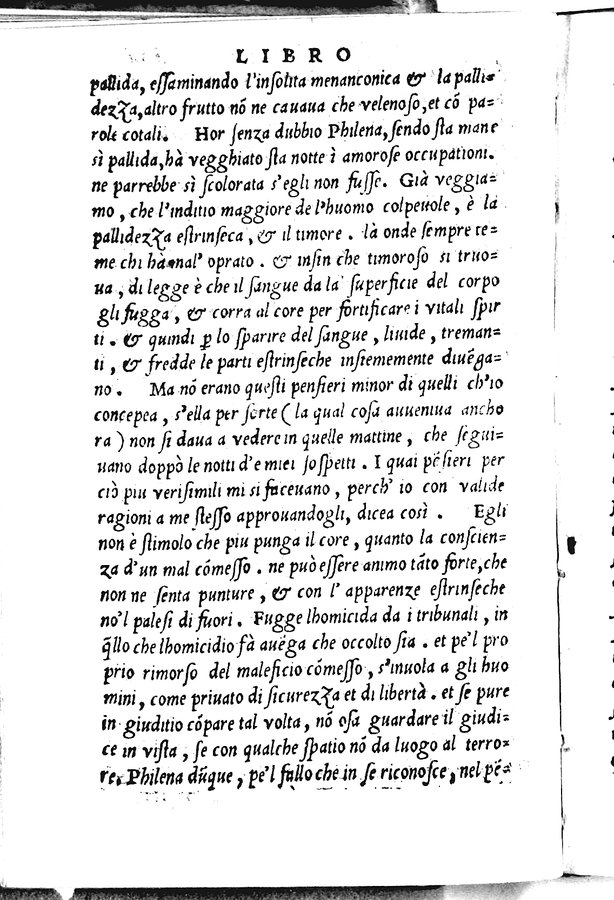 LIBRO
pallida, essaminando l'insolita menanconica & la palli=
dezza, altro frutto nõ ne cauaua che velenoso, et cõ pa=
role cotali. Hor senza dubbio Philena, sendo sta mane
sì pallida, hà vegghiato sta notte ĩ amorose occupationi.
ne parrebbe sì scolorata s'egli non fusse. Già veggia=
mo, che l'inditio maggiore de l'huomo colpeuole, è la
pallidezza estrinseca, & il timore. là onde sempre te=
me chi hà mal' oprato. & insin che timoroso si truo=
ua, di legge è che il sangue da la superficie del corpo
gli fugga, & corra al core per fortificare i vitali spir
ti. & quindi ꝑ lo sparire del sangue, liuide, treman=
ti, & fredde le parti estrinseche insiememente diuẽga=
no. Ma nõ erano questi pensieri minor di quelli ch'io
concepea, s'ella per sorte (la qual cosa auueniua ancho
ra) non si daua a vedere in quelle mattine, che segui=
uano doppò le notti d'e miei sospetti. I quai pẽsieri per
ciò piu verisimili mi si faceuano, perch' io con valide
ragioni a me stesso approuandogli, dicea così. Egli
non è stimolo che piu punga il core, quanto la conscien=
za d'un mal cõmesso. ne può essere animo tãto forte, che
non ne senta punture, & con l' apparenze estrinseche
no'l palesi di fuori. Fugge lhomicida da i tribunali, in
q̃llo che lhomicidio fà auẽga che occolto sia. et pe'l pro
prio rimorso del maleficio cõmesso, s'inuola a gli huo
mini, come priuato di sicurezza et di libertà. et se pure
in giuditio cõpare tal volta, nõ osa guardare il giudi=
ce in vista, se con qualche spatio nõ da luogo al terro=
re. Philena dũque, pe'l fallo che in se riconosce, nel pẽ=